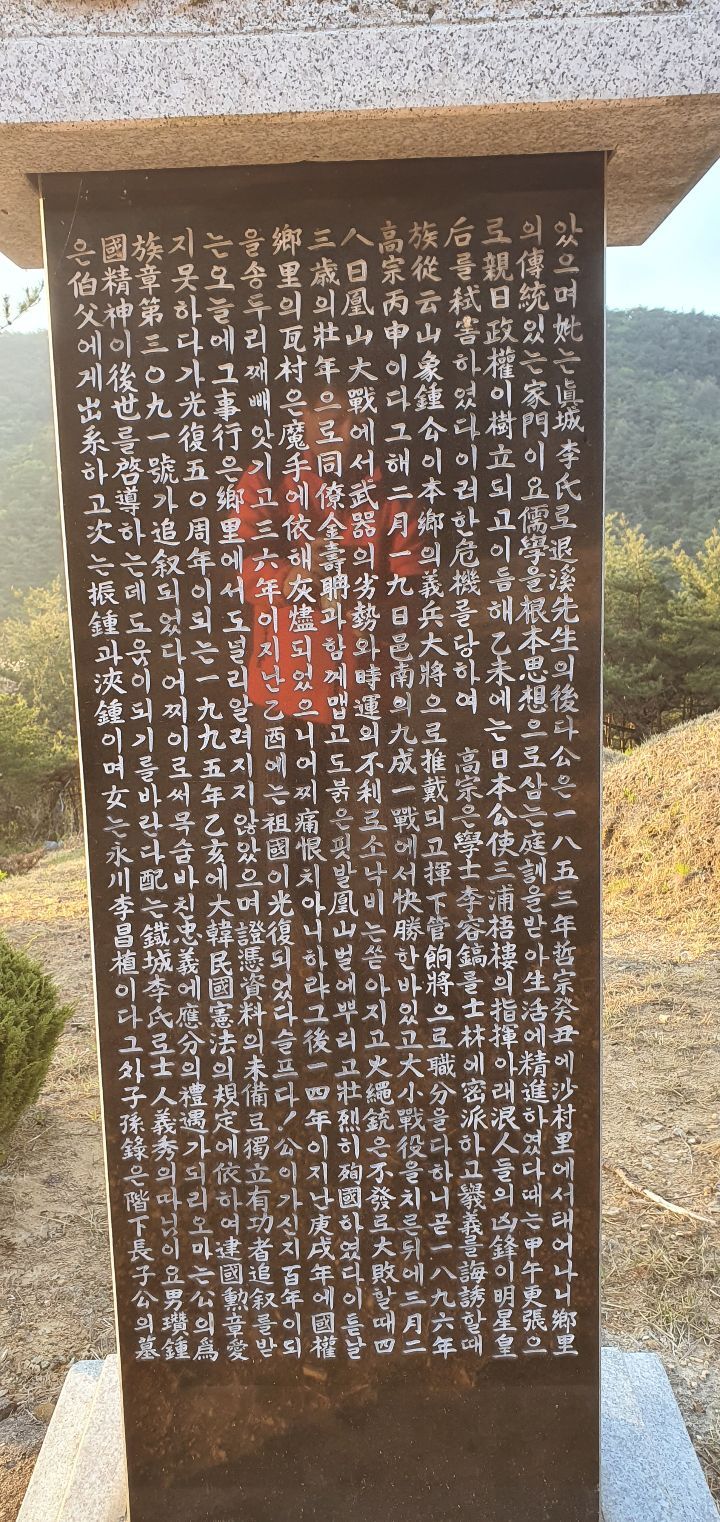 았으며 妣는 眞城李氏로 退溪先生의 後다 公은 一八五三年 哲宗癸丑에 沙村里에서 태어나니 鄕里
의 傳統있는 家門이요 儒學을 根本思想으로 삼는 庭訓을 받아 生活에 精進하였다 때는 甲午更張으
로 親日政權이 樹立되고 이듬해 乙未에는 日本公使 三浦梧樓의 指揮아래 浪人들의 凶鋒이 明星皇
后를 弑害하였다 이러한 危機를 당하여 高宗은 學士 李容鎬를 士林에 密派하고 擧義를 誨誘할때
族從 云山 象鍾公이 本鄕의 義兵大將으로 推戴되고 揮下 管餉將으로 職分을 다하니 곧 一八九六年
高宗丙申이다 그해 二月一九日 邑南의 九成一戰에서 快勝한바 있고 大小戰役을 치른뒤에 三月二
八日 凰山大戰에서 武器의 劣勢와 時運의 不利로 소낙비는 쏟아지고 火繩銃은 不發로 大敗할때 四
三歲의 壯年으로 同僚 金壽聃과 함께 맵고도 붉은 핏발 凰山벌에 뿌리고 壯烈히 殉國하였다 이튿날
鄕里의 瓦村은 魔手에 依해 灰燼되었으니 어찌 痛恨치 아니하랴 그後 一四年이 지난 庚戌年에 國權
을 송두리째 빼앗기고 三六年이 지난 乙酉에는 祖國이 光復되었다 슬프다! 公이 가신지 百年이 되
는 오늘에 그 事行은 鄕里에서도 널리 알려지지 않았으며 證憑資料의 未備로 獨立有功者 追叙를 받
지 못하다가 光復五○周年이 되는 一九九五年 乙亥에 大韓民國憲法의 規定에 依하여 建國勳章 愛
族章 第三○九一號가 追叙되었다 어찌 이로써 목숨바친 忠義에 應分의 禮遇가 되리오마는 公의 爲
國精神이 後世를 啓導하는데 도움이 되기를 바란다 配는 鐵城李氏로 士人 義秀의 따님이요 男 瓚鍾
은 伯父에게 出系하고 次는 振鍾과 浹鍾이며 女는 永川 李昌植이다 그外 子孫錄은 階下 長子公의 墓